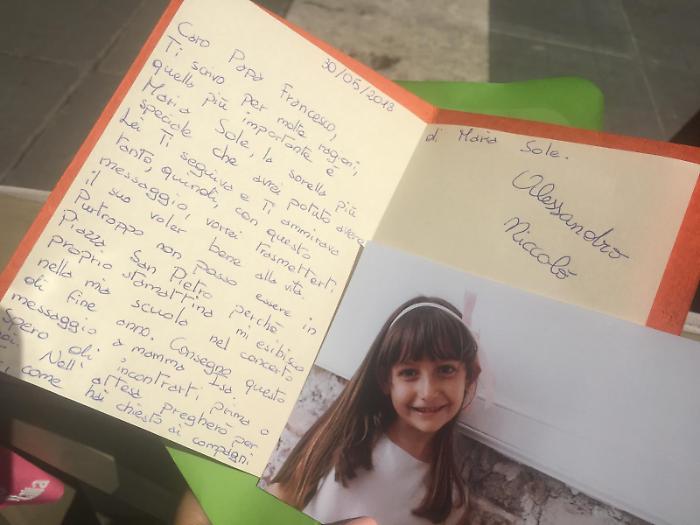 30/05/2018
Caro Papa Francesco,
Ti scrivo per molte ragioni,
quella più importante è
Maria Sole, la sorella più
speciale che avrei potuto avere.
Lei Ti seguiva e Ti ammirava
tanto, quindi, con questo
messaggio, vorrei trasmetterti
il suo voler bene alla vita.
Purtroppo non posso essere in
Piazza San Pietro perché
proprio stamattina mi esibisco
nella mia scuola nel concerto
di fine anno. Consegne questo
messaggio a mamma
Spero di incontrarti, prima o
poi. Nell' attesa pregherò per
Ti come hai chiesto ai compagni
di Maria Sole.
Alessandro
Niccolò